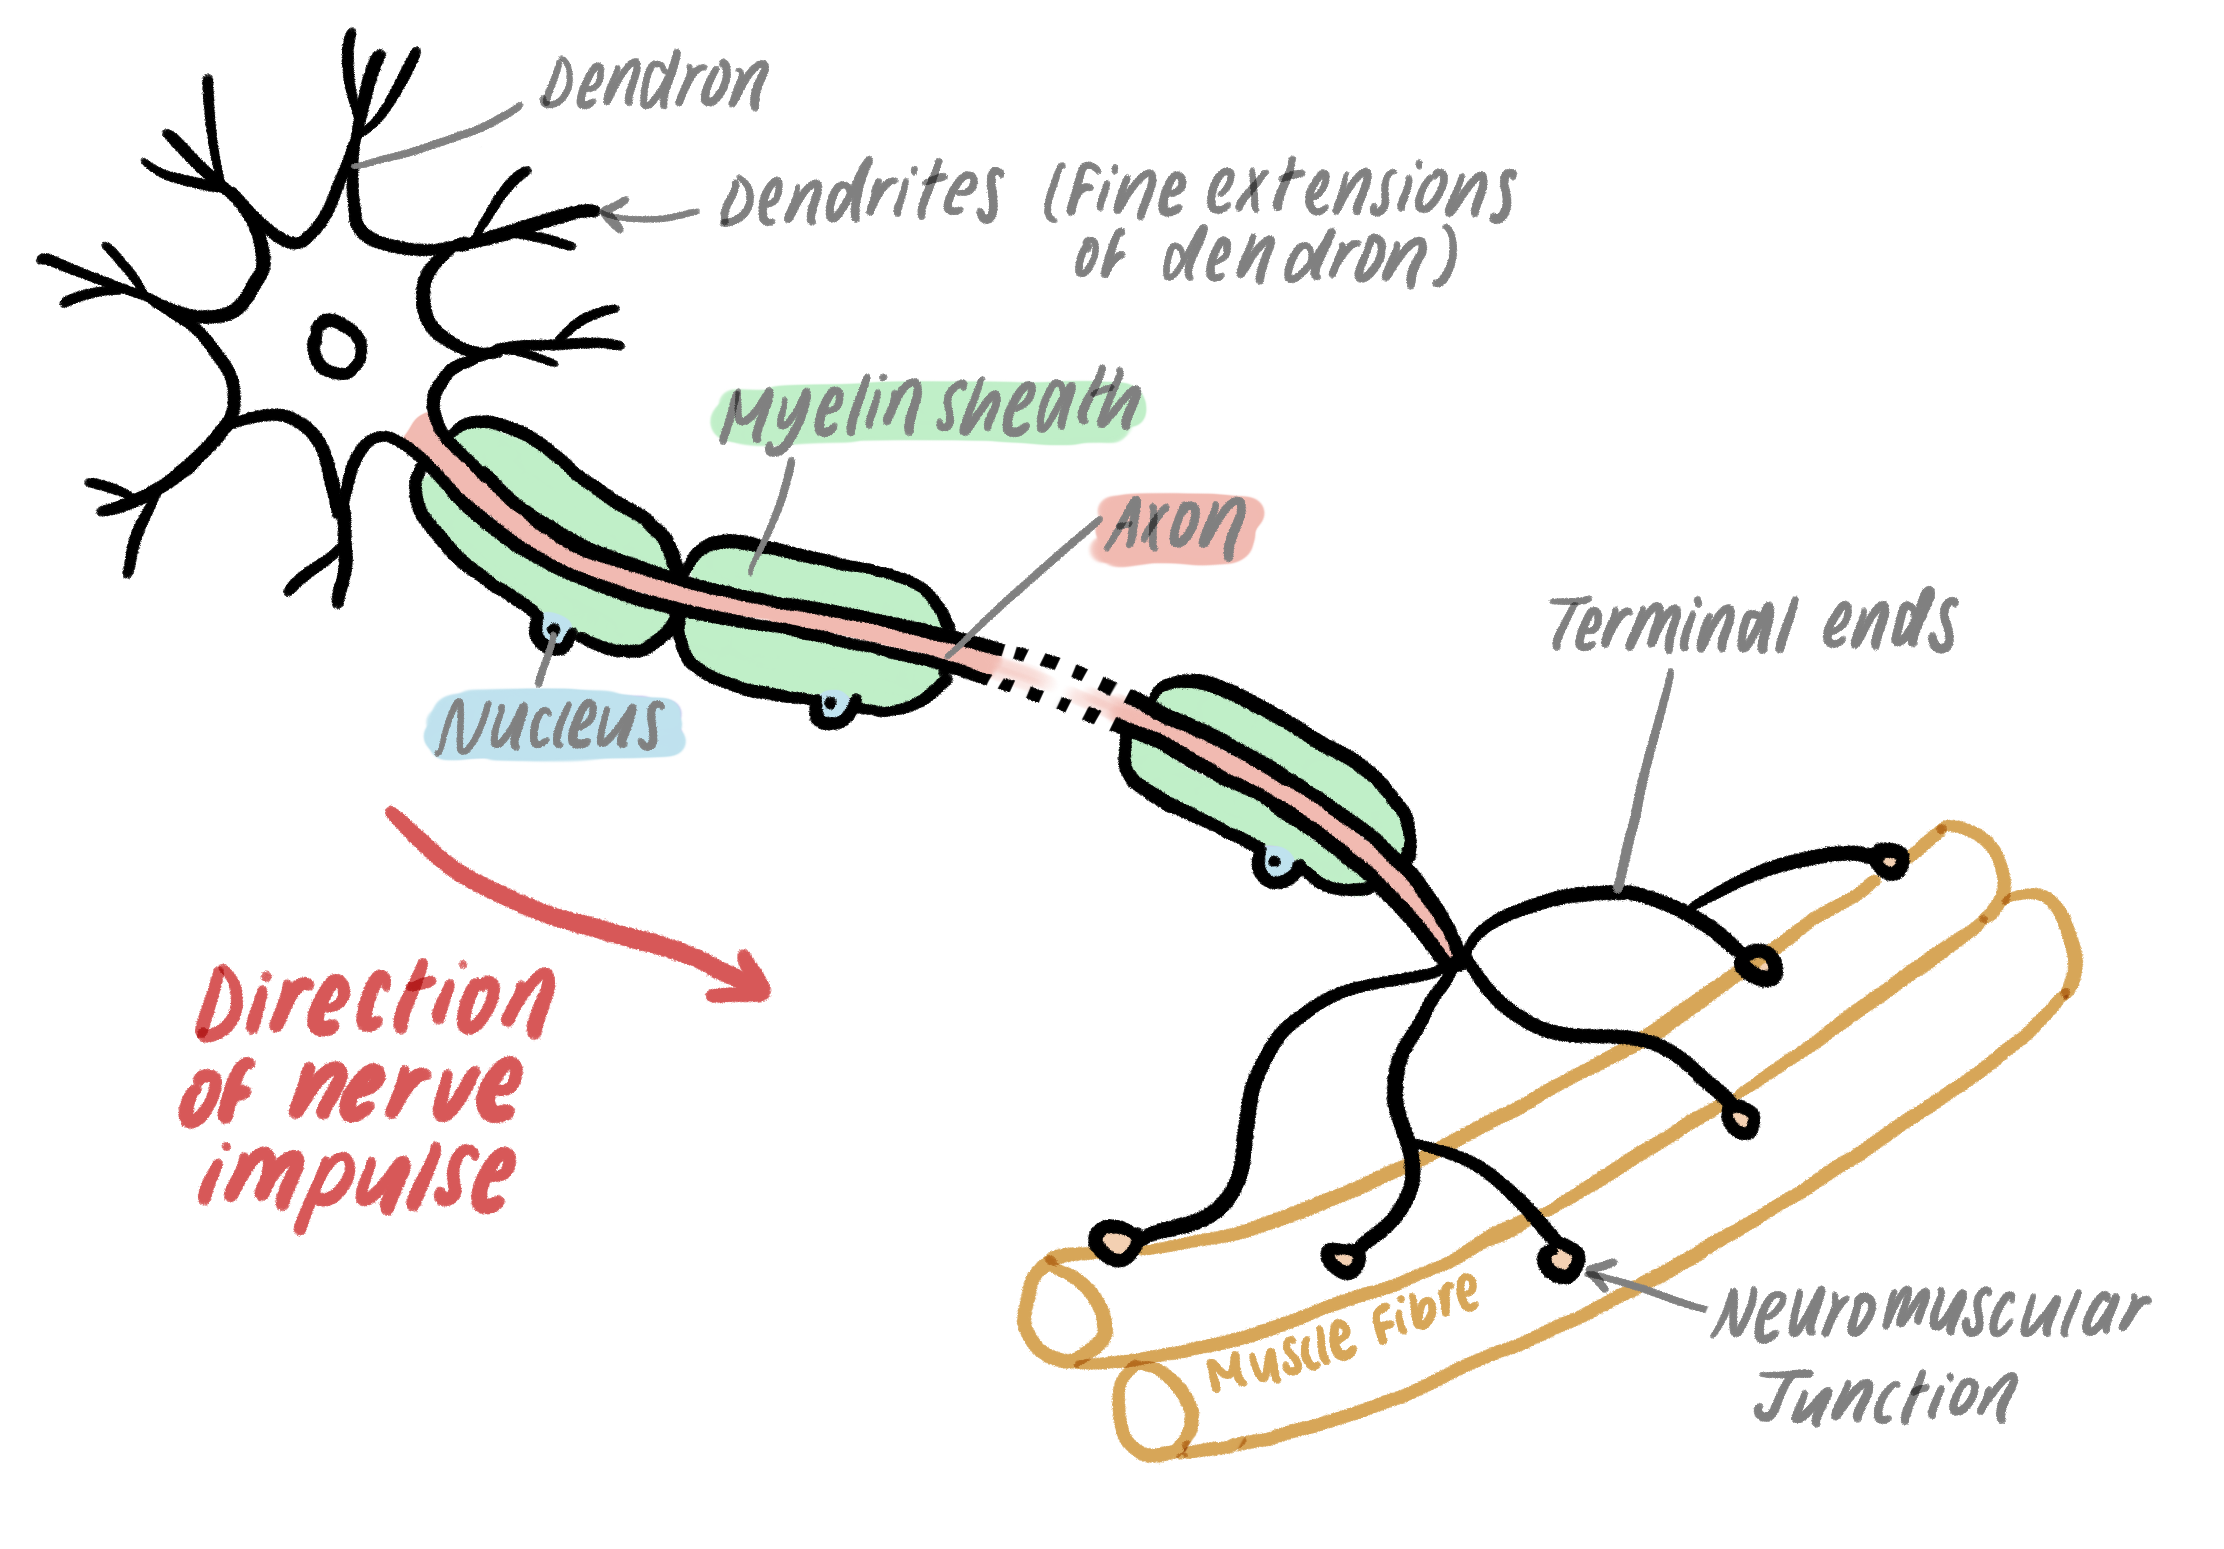 Dendron
Dendrites (Fine extensions
of dendron)
Myelin sheath
Axon
Terminal ends
Nucleus
Direction
of nerve
impulse
Muscle Fibre
Neuromuscular
Junction